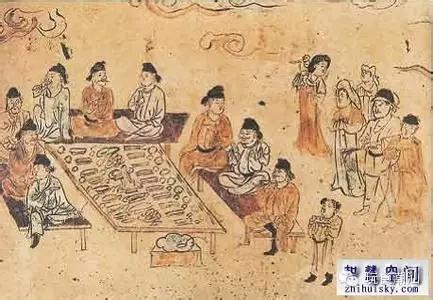 智慧空间
zhihuisky.com